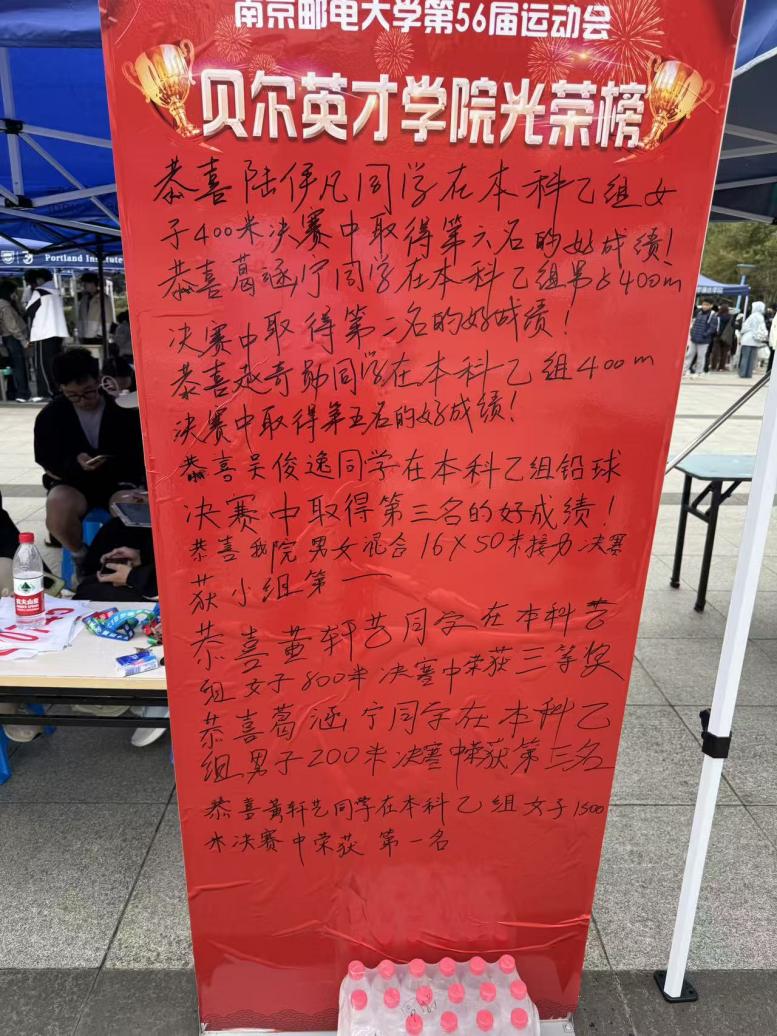 南京邮电大学第56届运动会
贝尔英才学院光荣榜
恭喜陆伊凡同学在本科乙组女
子400米决赛中取得第六名的好成绩！
恭喜葛涵宁同学在本科乙组男子400m
决赛中取得第二名的好成绩！
恭喜赵奇勋同学在本科乙组400m
决赛中取得第五名的好成绩！
恭喜吴俊逸同学在本科乙组铅球
决赛中取得第三名的好成绩！
恭喜我院男女混合16×50米接力决赛
获小组第一
恭喜黄轩艺同学在本科乙
组女子800米决赛中荣获三等奖
恭喜葛涵宁同学在本科乙
组男子200米决赛中荣获第三名
恭喜黄轩艺同学在本科乙组女子1500
米决赛中荣获 第一名
Portland Institute
农夫山泉